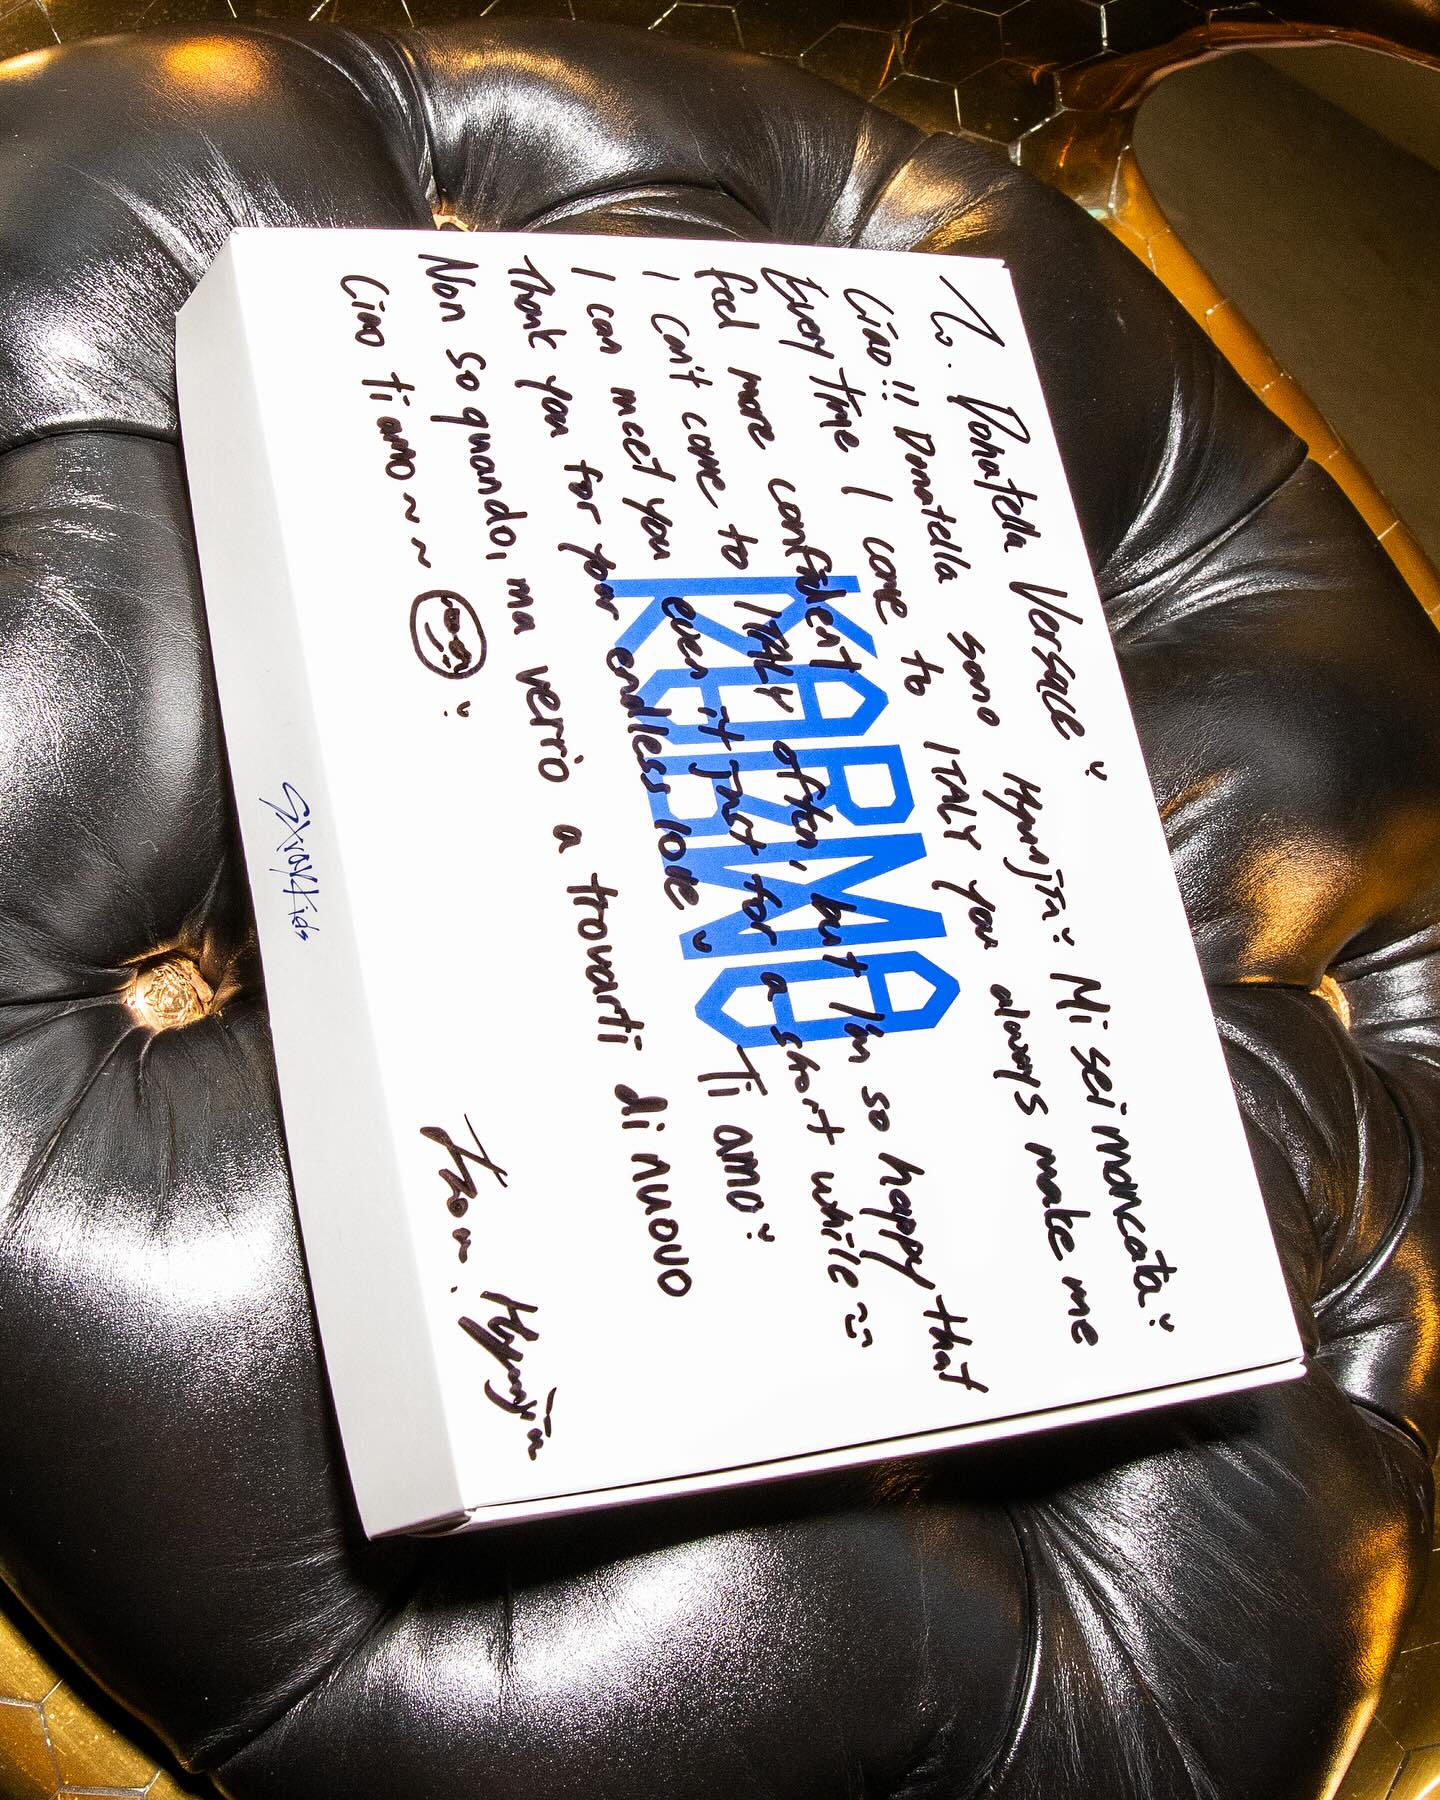 To. Donatella Versace
Ciao!! Donatella sono Hyunjin Mi sei mancata
Every time I come to ITALY you always make me
feel more confident
I can't come to ITALY often, but I'm so happy that
I can meet you even it just for a short while ~
Thank you for your endless love Ti amo
Non so quando, ma verrò a trovarti di nuovo
Ciao ti amo ~ ~ ~
From. Hyunjin
KARMA
StrayKids